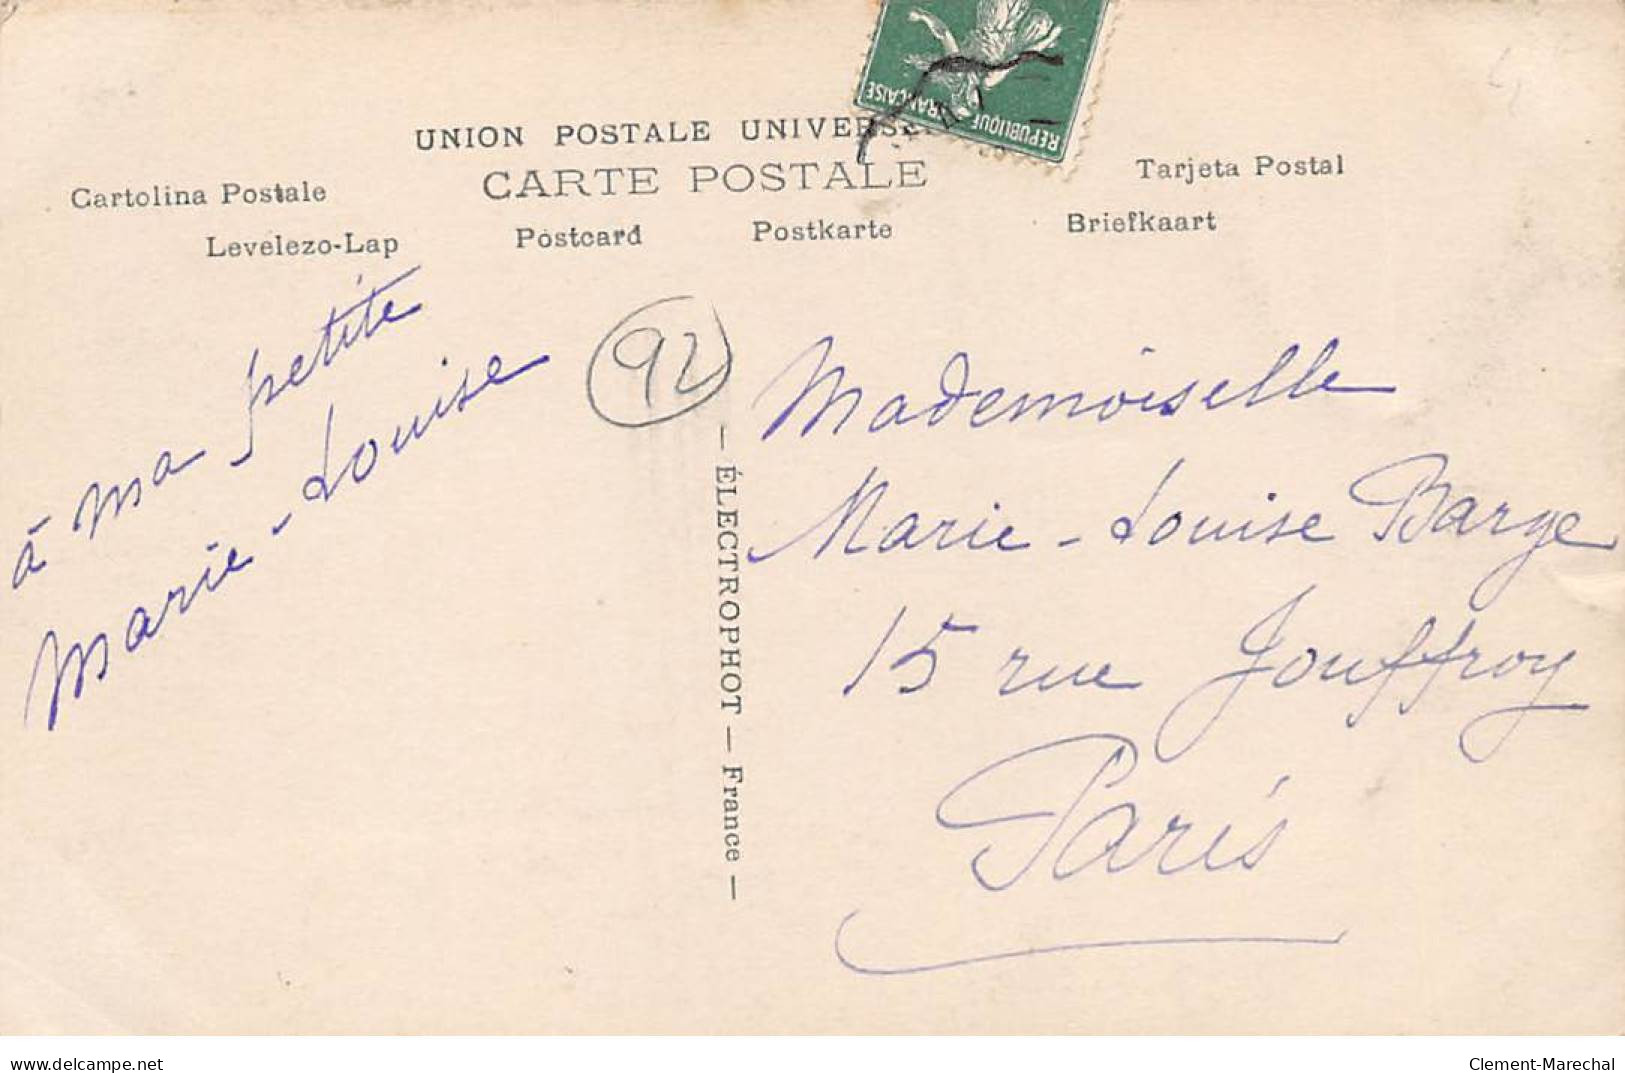 UNION POSTALE UNIVERSE
CARTE POSTALE
Cartolina Postale
Tarjeta Postal
Levelezo-Lap
Postcard
Postkarte
Briefkaart
REPUBLIQUE FRANCAISE
à ma petite
Marie-Louise
92
— ÉLECTROPHOT — France —
Mademoiselle
Marie-Louise Barge
15 rue Jouffroy
Paris
delcampe.net
Clement-Marechal